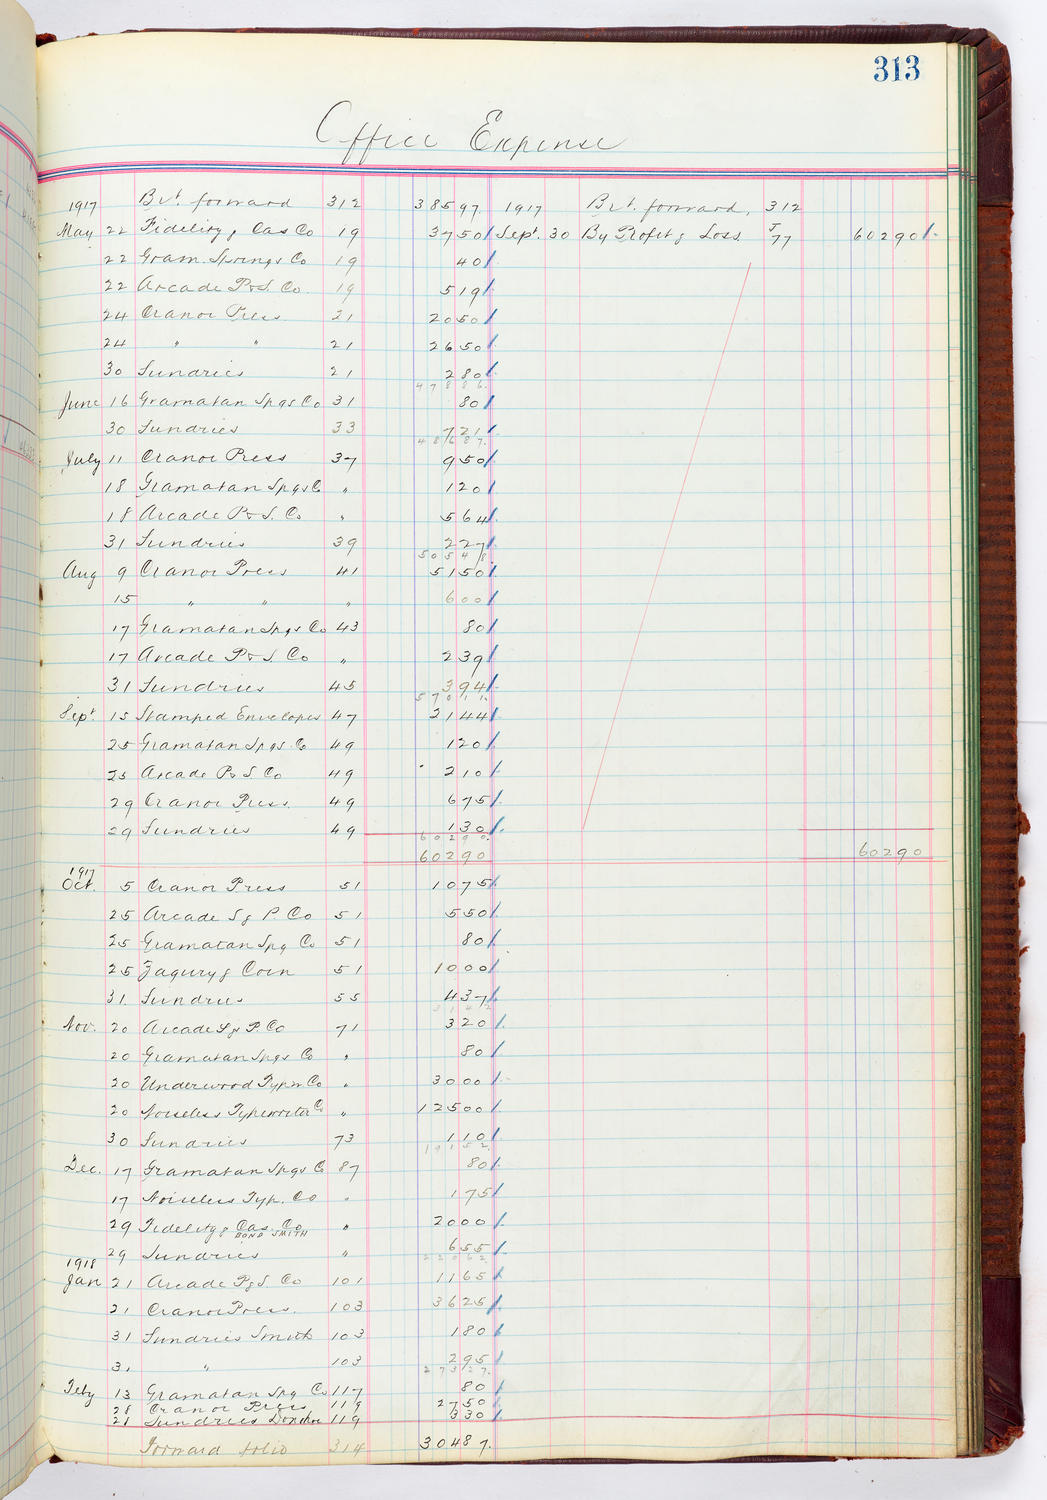 313
Office Expense
1917 Brt. forward 312 38597. 1917 Brt. forward, 312
May 22 Fidelity & Cas Co 19 3750 Sept. 30 By Profit & Loss J77 60290
22 Gram. Springs Co 19 40
22 Arcade P & S. Co. 19 519
24 Cranor Press 21 2050
24 " " 21 2650
30 Sundries 21 280
47886.
June 16 Gramatan Spgs Co 31 80
30 Sundries 33 721
48687.
July 11 Cranor Press 37 950
18 Gramatan Spgs Co " 120
18 Arcade P & S. Co " 564
31 Sundries 39 227
50548
Aug 9 Cranor Press 41 5150
15 " " " 600
17 Gramatan Spgs Co 43 80
17 Arcade P & S. Co " 239
31 Sundries 45 394
57011.
Sept. 15 Stamped Envelopes 47 2144
25 Gramatan Spgs. Co 49 120
25 Arcade P & S Co 49 210
29 Cranor Press. 49 675
29 Sundries 49 130
60290.
60290 60290
1917
Oct. 5 Cranor Press 51 1075
25 Arcade S & P. Co 51 550
25 Gramatan Spg Co 51 80
25 Zagury & Coen 51 1000
31. Sundries 55 437
3142
Nov. 20 Arcade S & P. Co 71 320
20 Gramatan Spgs Co " 80
20 Underwood Typw Co " 3000
20 Noiseless Typewriter Co " 12500
30 Sundries 73 110
19152.
Dec. 17 Gramatan Spgs Co 87 80
17 Noiseless Typ. Co " 175
29 Fidelity & Cas. Co. " 2000
BOND SMITH
29 Sundries " 655
22062.
1918
Jan 21 Arcade P & S. Co 101 1165
21 Cranor Press. 103 3625
31 Sundries Smith 103 180
31 " 103 295
27327.
Feby 13 Gramatan Spg Co 117 80
28 Cranor Press 119 2750
28 Sundries Donohoe 119 330
Forward folio 314 30487.